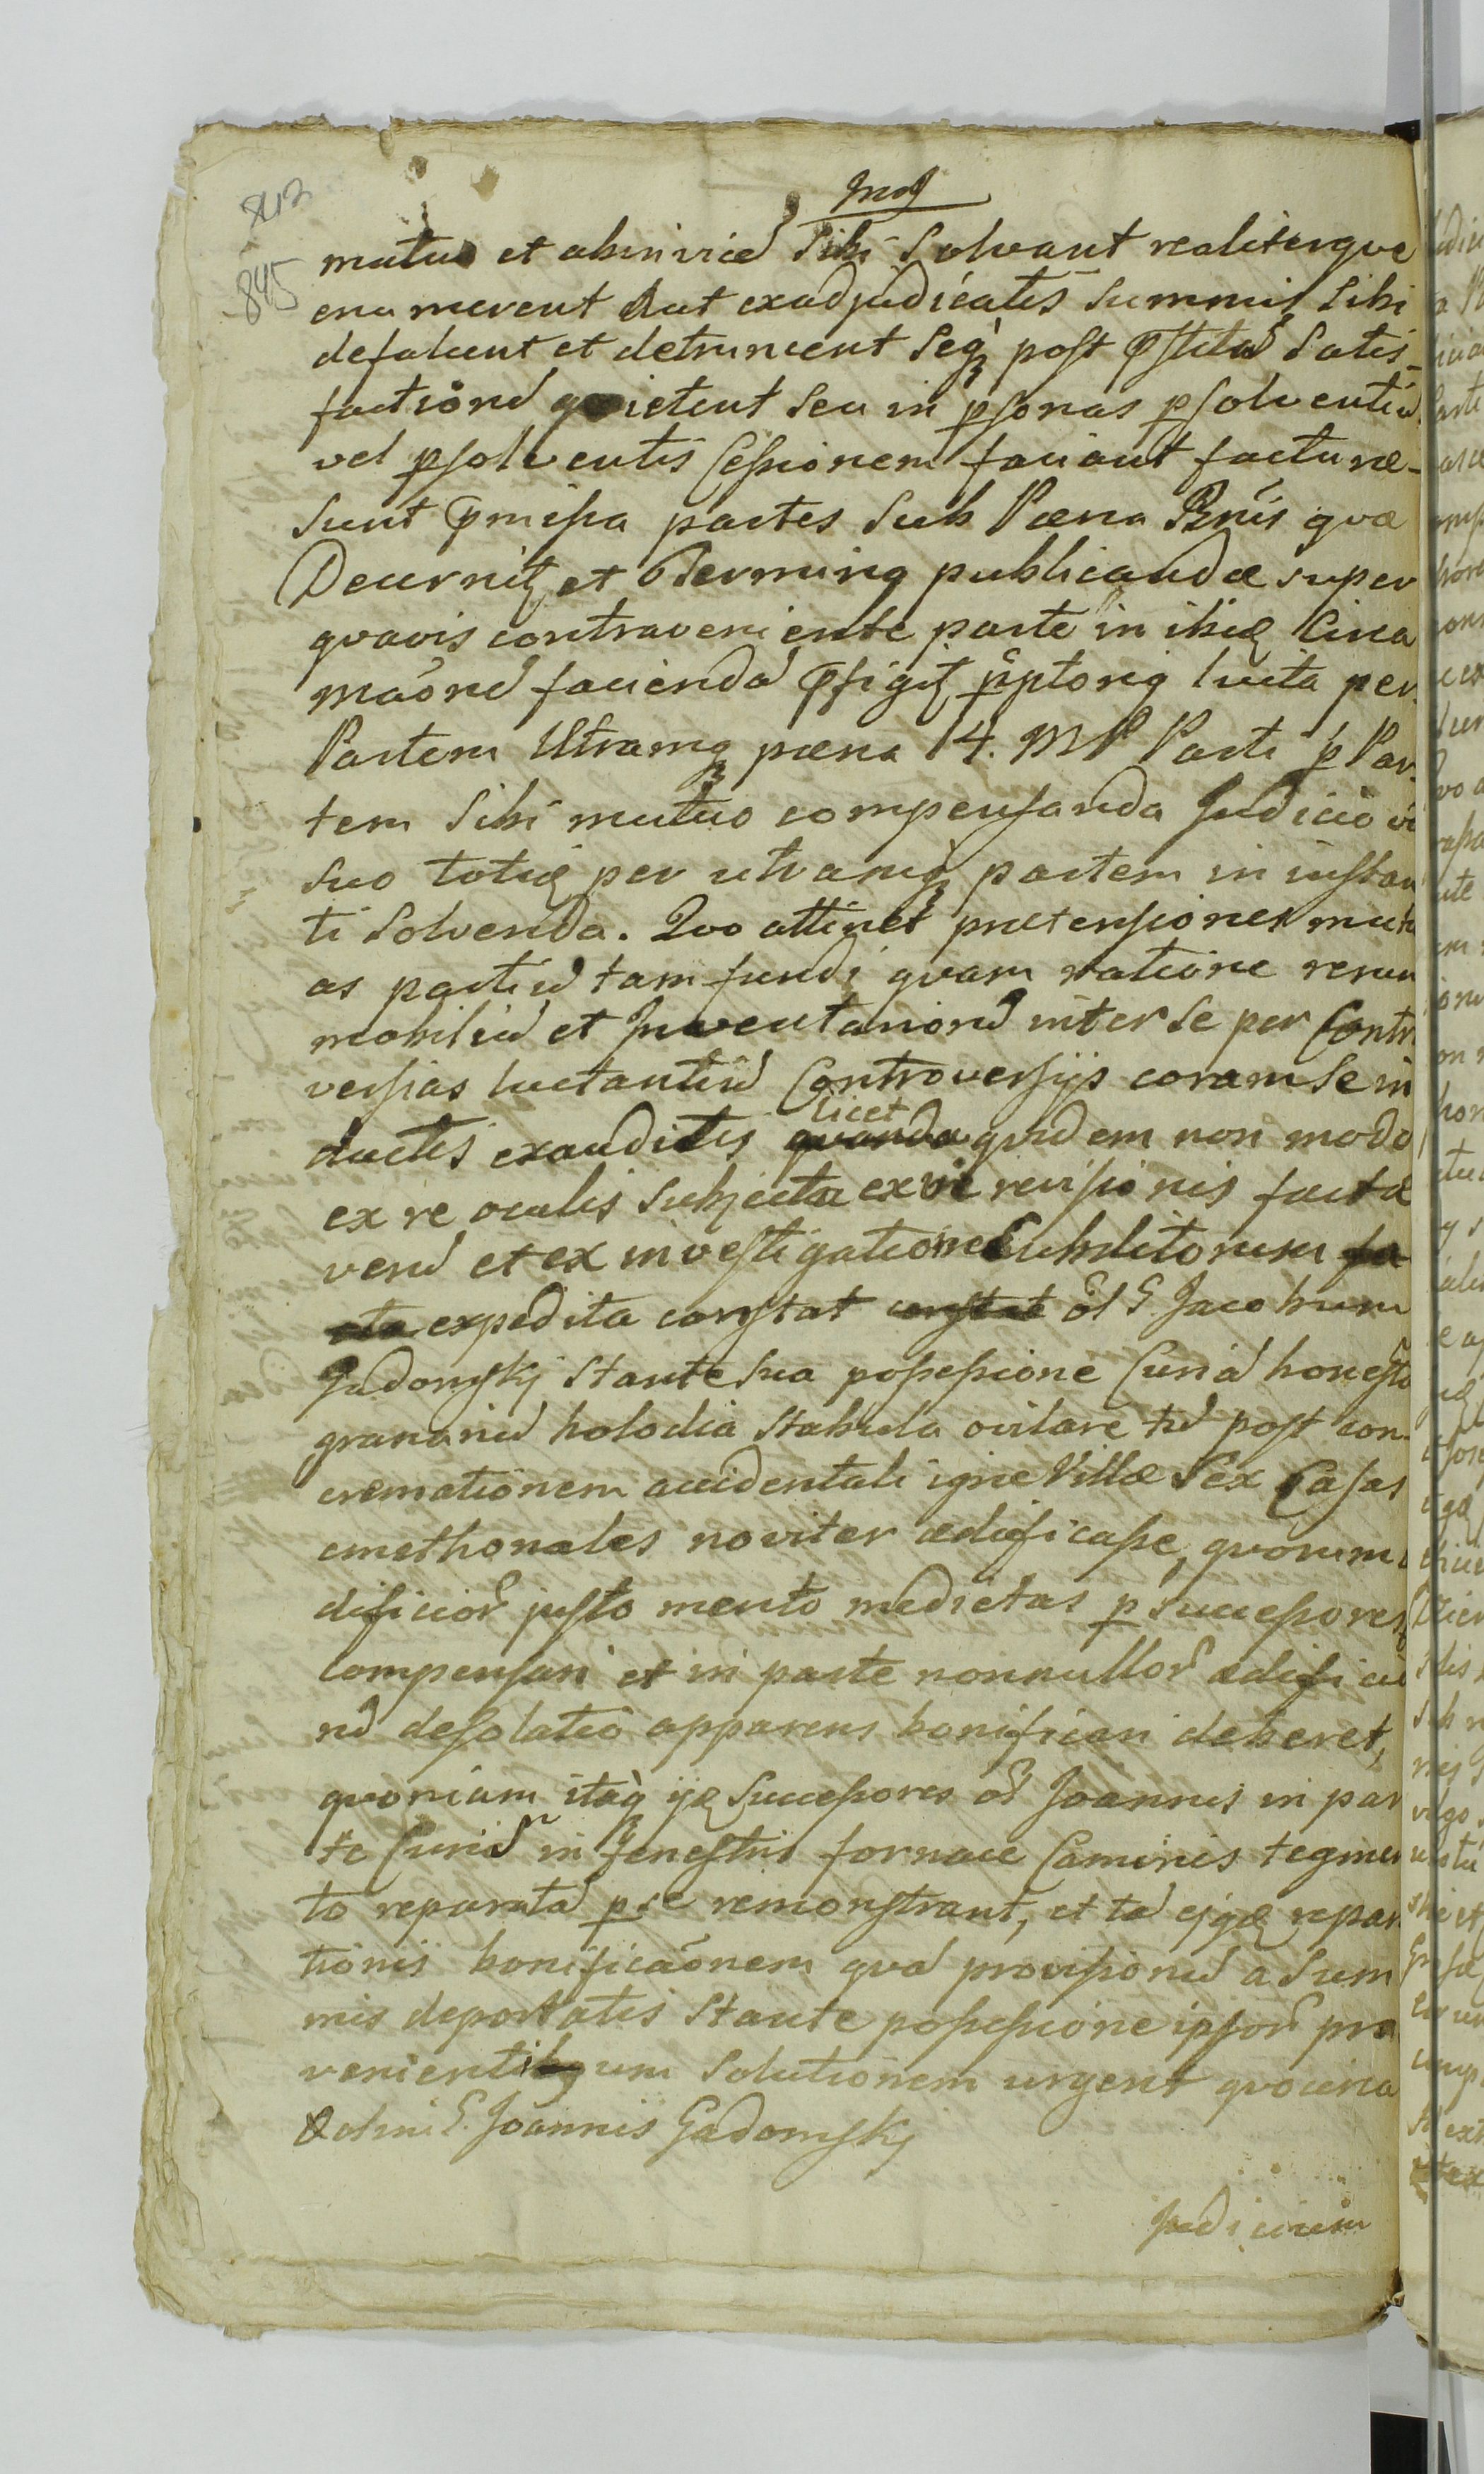 842
845
mutuo et abinvicē Sibi Solvant realiterqve
enumerent Aut exadjudicatis Summis Sibi
defalcent et detruncent Seqꝫ post pstitā Satis-
factionē qvietent Seu in psonas psolventiū
vel psolventis Cessionem faciant facturæ
Sunt pmissa partes Sub Pæna Bnis qvæ
Decernit et publicandæ super
qvavis contraveniente parte in ibiꝗ Circa
māonē faciendā pfigit luita per
Partem Utramqꝫ pæna 14. MP Parti p Par-
tem Sibi mutuo compensanda Judicio v̄
suo totiꝗ per utramqꝫ partem in instan
ti Solvenda. Qvo attinet prætensiones mutu
as partiū tam fundi qvam ratione rerum
mobiliū et Inventariorū inter Se per Contr
versias luctantiū Controversijs coram Se in
ductis exauditis qvanda licet qvidem non modo
ex re oculis Subjecta ex vi revisionis facta
verū et ex investigatione Subditorum fa
cta expedita constat constat ol G. Jacobum
Gadomskj Stante Sua possessione Curiā honestā
granariū bolodia Stabula ovilare tū post con-
cremationem accidentali igne Villæ Sex Casas
cmethonales noviter ædificasse, qvorum
dificior justo merito medietas p Successores
compensari et in parte nonnullor ædificio
rū desolatio apparens bonificari deberet,
qvoniam itaqꝫ ijꝗ Successores ol Joannis in par
te Curiā in fenestris fornace Caminis tegmen
to reparatā p se remonstrant, et tā ejꝗ repar
tionis bonificāonem qvā provisionū a Sum
mis deportatis Stante possessione ipsor pro
venientium Solutionem urgent qvocirca
olim G. Joannis Gadomskj
Judicium